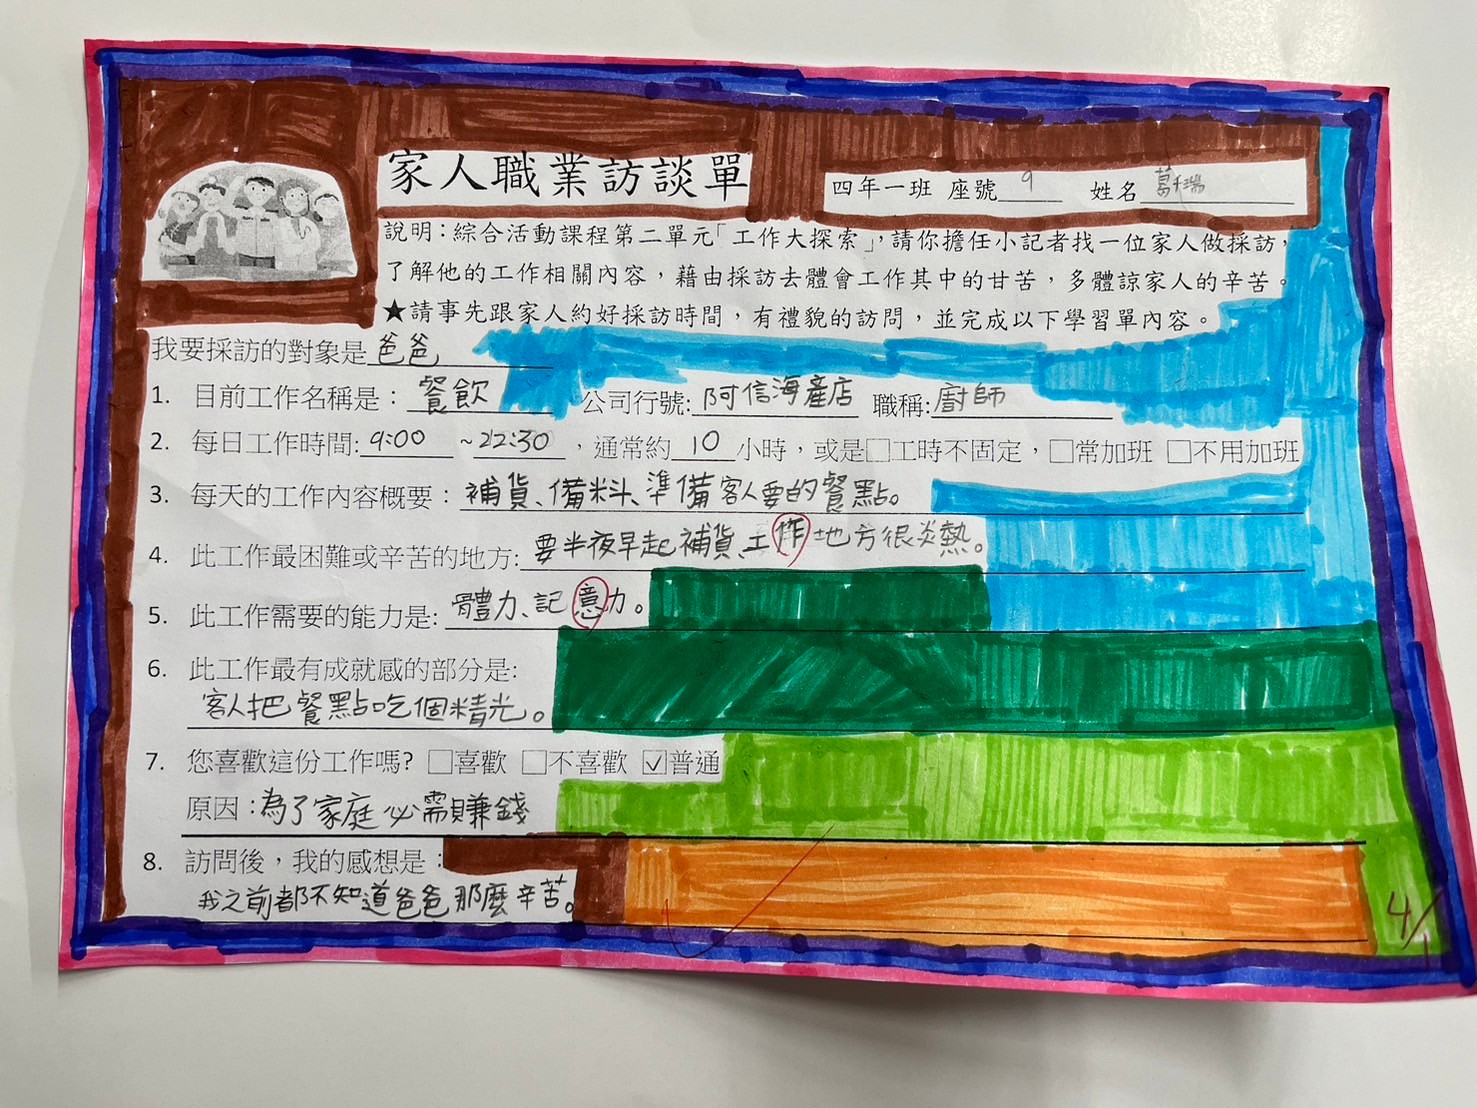 家人職業訪談單
四年一班 座號 9 姓名
說明：綜合活動課程第二單元「工作大探索」，請你擔任小記者找一位家人做採訪，
了解他的工作相關內容，藉由採訪去體會工作其中的甘苦，多體諒家人的辛苦。
★請事先跟家人約好採訪時間，有禮貌的訪問，並完成以下學習單內容。
我要採訪的對象是爸爸
1. 目前工作名稱是：餐飲 公司行號:阿信海產店 職稱:廚師
2. 每日工作時間:9:00 ~22:30，通常約 10 小時，或是□工時不固定，□常加班 □不用加班
3. 每天的工作內容概要：補貨、備料、準備客人要的餐點。
4. 此工作最困難或辛苦的地方:要半夜早起補貨、工作地方很炎熱。
5. 此工作需要的能力是:體力、記意力。
6. 此工作最有成就感的部分是:
客人把餐點吃個精光。
7. 您喜歡這份工作嗎? □喜歡 □不喜歡 ☑普通
原因:為了家庭必需賺錢
8. 訪問後，我的感想是：
我之前都不知道爸爸那麼辛苦。
4/1